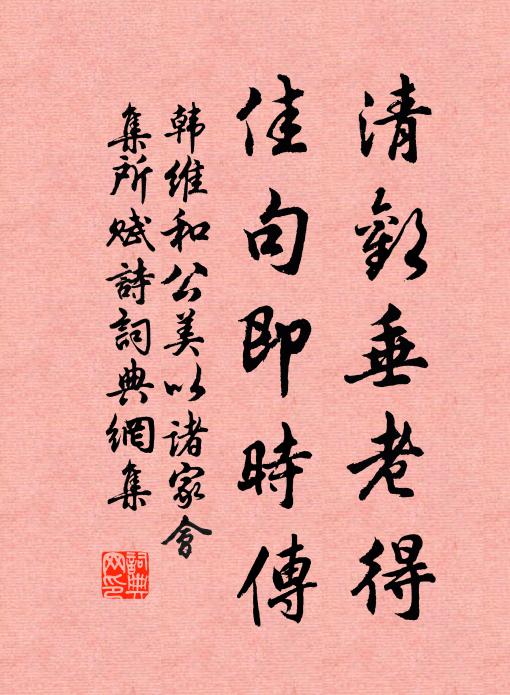 清歡垂老得
佳句即時傳
韩維和公美以諸家會
集所赋詩詞典網集
詞典網印